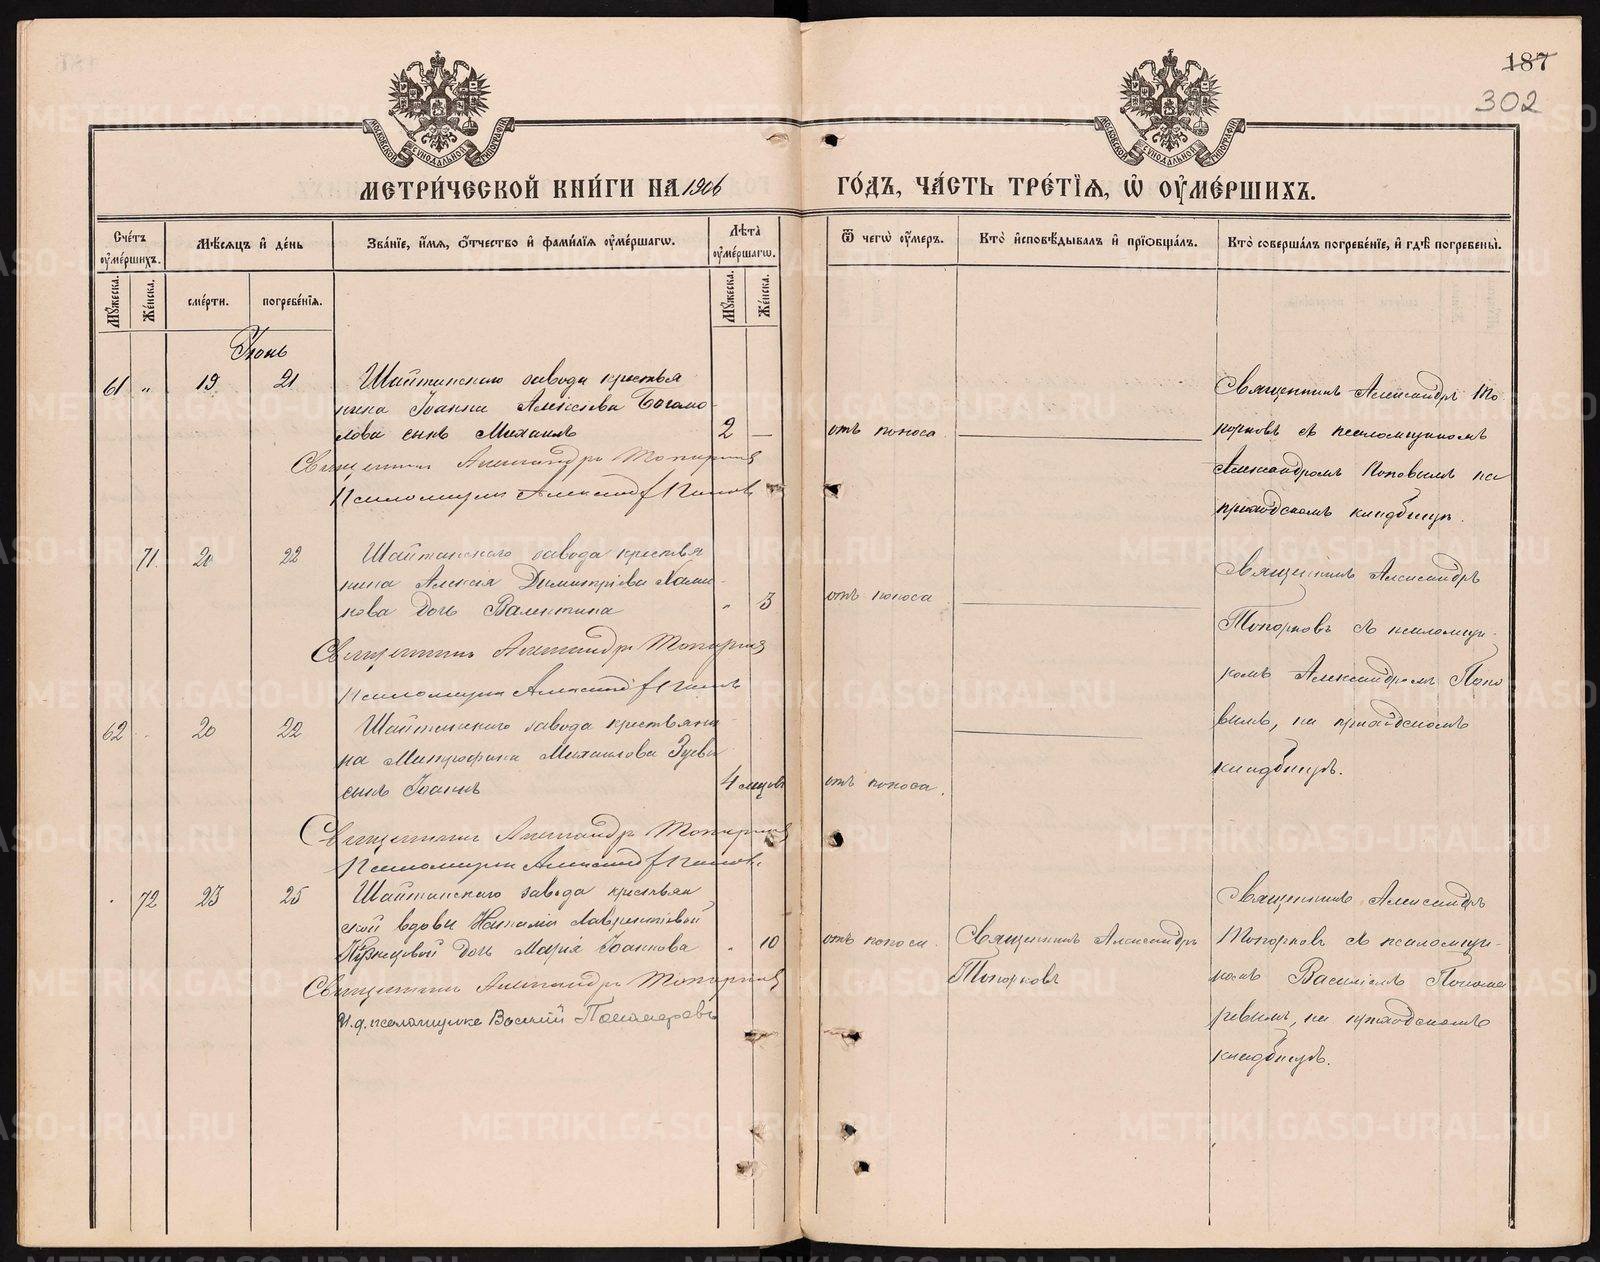 187
302
МОСКОВСКОЙ СѴНОДАЛЬНОЙ ТИПОГРАФІИ
МОСКОВСКОЙ СѴНОДАЛЬНОЙ ТИПОГРАФІИ
МЕТРИ́ЧЕСКОЙ КНИ́ГИ НА 1906
ГО́ДЪ, ЧА́СТЬ ТРЕ́ТІѦ, Ѽ ОУ҆МЕ́РШИХЪ.
Сче́тъ оу҆ме́ршихъ.
Мꙋ́жеска.
Же́нска.
Мѣ́сѧцъ и҆ де́нь
сме́рти.
погребе́нїѧ.
Зва́нїе, и҆́мѧ, ѻ҆́тчество и҆ фами́лїѧ оу҆ме́ршагѡ.
Лѣ́та оу҆ме́ршагѡ.
Мꙋ́жеска.
Же́нска.
Ѿ чегѡ̀ оу҆́меръ.
Кто̀ и҆сповѣ́дывалъ и҆ прїѡбща́лъ.
Кто̀ соверша́лъ погребе́нїе, и҆ гдѣ̀ погребены̀.
Іюнь
61 " 19 21 Шайтанскаго завода крестья
нина Іоанна Алексѣева Богамо-
лова сынъ Михаилъ 2 — отъ поноса
Священникъ Александръ Топорковъ
Псаломщикъ Александр Попов
Священникъ Александръ То
порковъ съ псаломщикомъ
Александромъ Поповымъ на
приходскомъ кладбищѣ.
71. 20 22 Шайтанскаго завода крестья
нина Алексія Димитріева
дочь Валентина " 3 отъ поноса
Священникъ Александръ Топорковъ
Псаломщикъ Александр Попов
Священникъ Александръ
Топорковъ съ псаломщи-
комъ Александромъ Попо
вымъ, на приходскомъ
кладбищѣ.
62 20 22 Шайтанскаго завода крестьяни-
на Митрофана Михаилова Зуева
сынъ Іоаннъ 4 мѣсцовъ отъ поноса.
Священникъ Александръ Топорковъ
Псаломщикъ Александр Попов.
72 23 25 Шайтанскаго завода крестьян
ской вдовы Наталіи Лаврентіевой
Кузнецовой дочь Марія Іоаннова " 10 отъ поноса.
Священникъ Александръ Топорковъ
И. д. псаломщика Василій Пономаревъ
Священникъ Александръ
Топорковъ
Священникъ Александръ
Топорковъ съ псаломщи-
комъ Василіемъ Понома
ревымъ, на приходскомъ
кладбищѣ.
METRIKI.GASO-URAL.RU